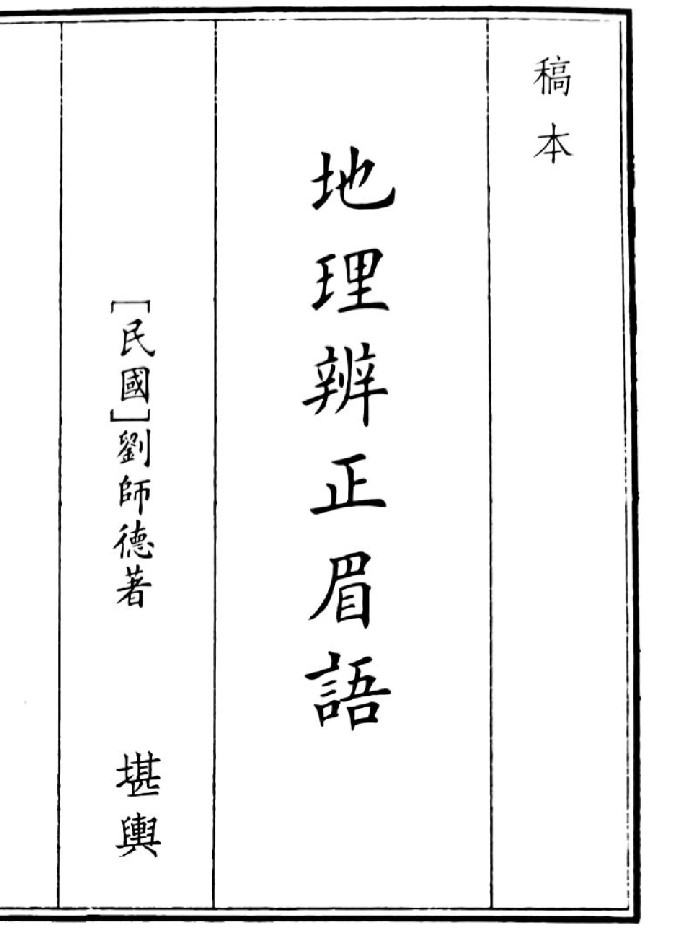 稿本
地理辨正眉語
[民國]劉師德著
堪輿